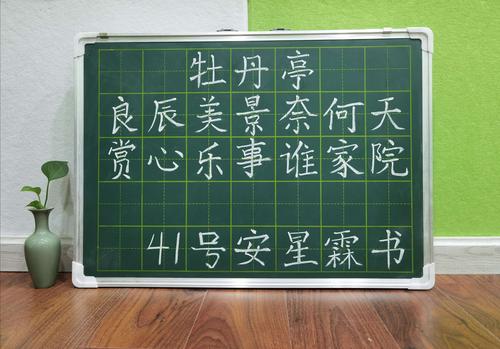 牡丹亭
良辰美景奈何天
赏心乐事谁家院
41号安星霖书